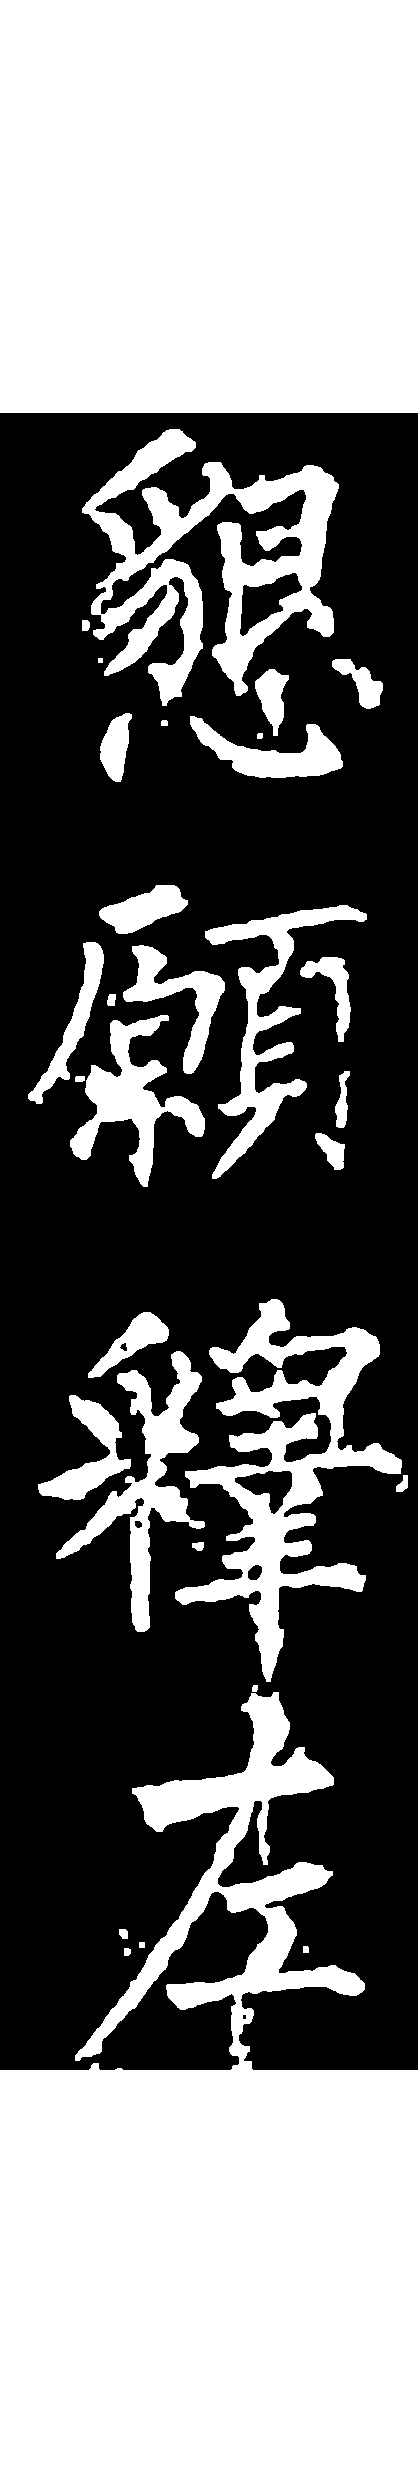 懇願釋左